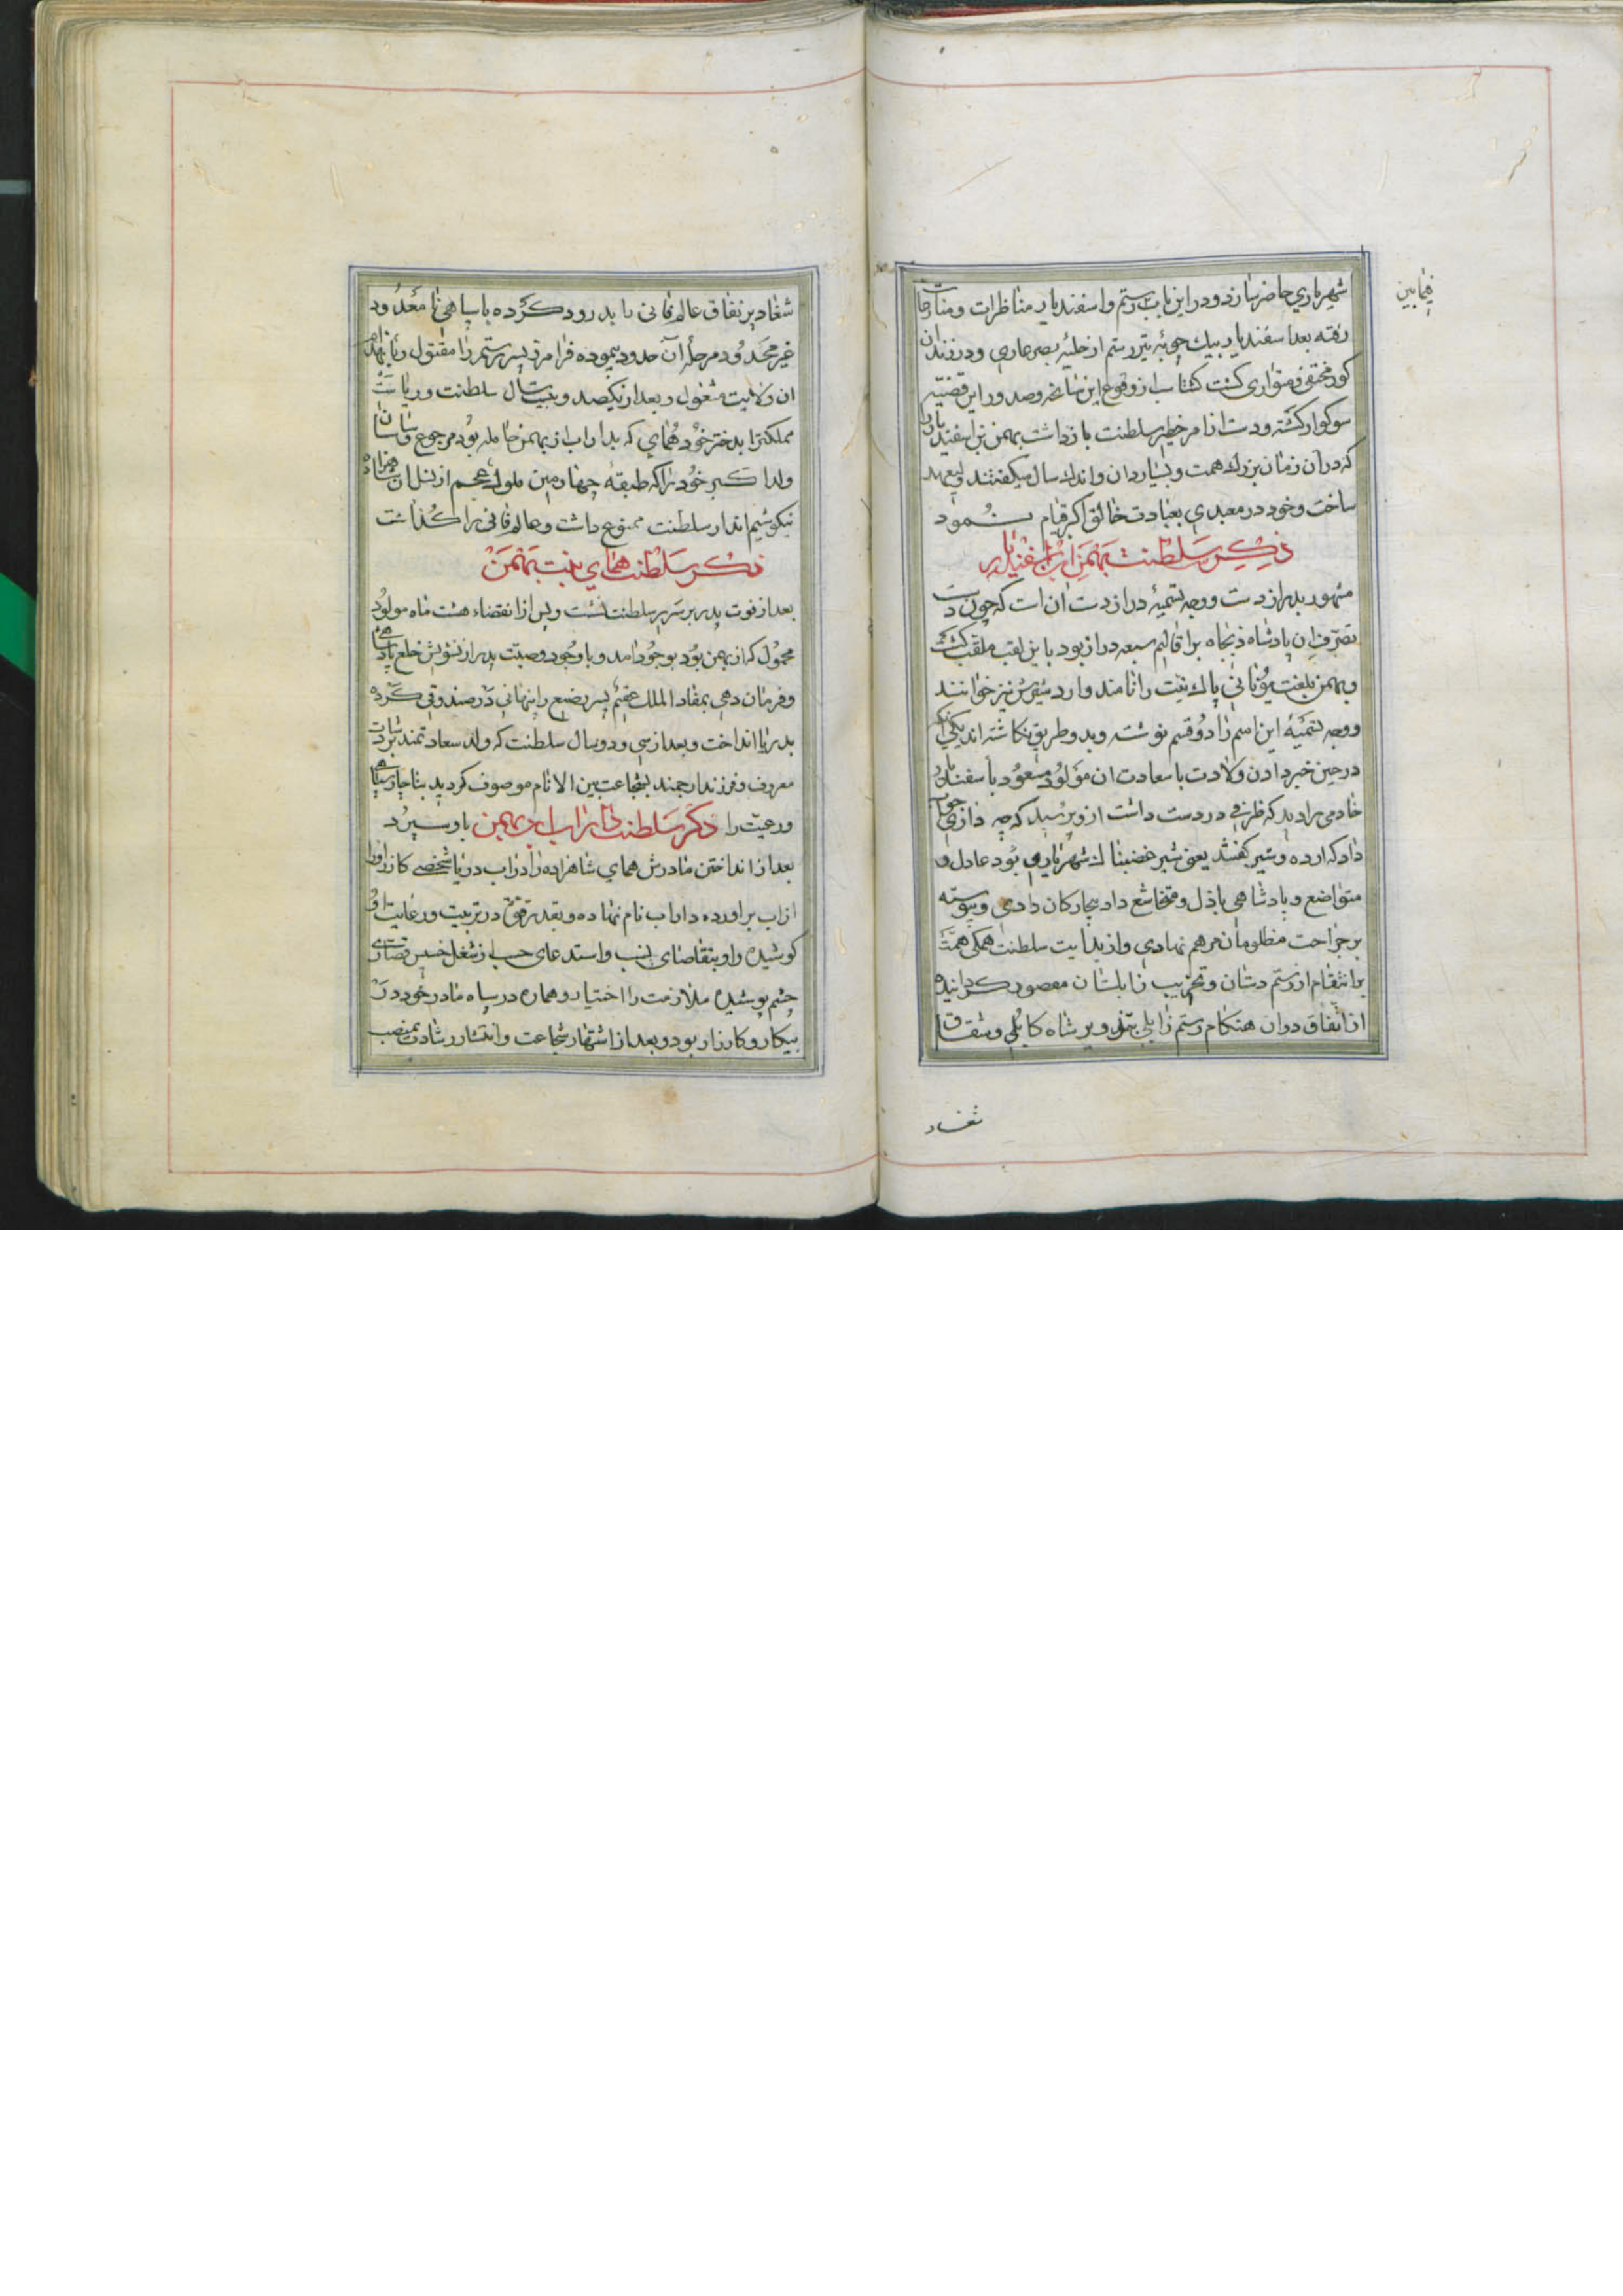 شهرياری حاضر سازد و در اين باب رستم و اسفنديار مناظرات و منازعات
فيمابين
رفته بعد اسفنديار بيك چوبه تير رستم از حليه بصر عاری و در زندان
كور مختفی و متواری كشت كشتاسب از وقوع اين سانحه و صدور اين قضيه
سوكوار كشته و دست از امر خطير سلطنت باز داشت بهمن بن اسفنديار را
كه در آن زمان بزرك همت و بسيار دان و اندك سال ميكفتند وليعهد
ساخت و خود در معبدی بعبادت خالق اكبر قيام نمود
ذكر سلطنت بهمن ابن اسفنديار
مشهور بدراز دست و وجه تسميه دراز دست ان است كه چون دست
تصرف ان پادشاه ذيجاه بر اقاليم سبعه دراز بود باين لقب ملقب كشت
و بهمن بلغت يونانی پاك نيت را نامند و اردشيرش نيز خوانند
و وجه تسميه اين اسم را دو قسم نوشته و بدو طريق نكاشته اند يكی آنكه
در حين خبر دادن ولادت با سعادت ان مولود مسعود باسفنديار
خادمی را ديد كه ظرفی در دست داشت از و پرسيد كه چه داری جواب
داد كه ارده و شير كفتند يعنی شير غضبناك شهرياری بود عادل و
متواضع و پادشاهی باذل و متخاشع داد بيچاركان دادی و پيوسته
بر جراحت مظلومان مرهم نهادی و از بدايت سلطنت همكی همت
بر انتقام از رستم دستان و تخريب زابلستان مقصود كردانيده
از اتفاق دوران هنكام رستم زابلی بتزوير شاه كابلی و شقاق
شغاد
شغاد پر نفاق عالم فانی را بدرود كرده با سپاهی نا معدود
غير محدود مرحله آن حدود پيموده فرامرز پسر رستم را مقتول و بانهدام
ان ولايت مشغول و بعد از يكصد و بيست سال سلطنت و رياست
مملكت را بدختر خود همای كه بداراب از بهمن حامله بود مرجوع و ساسان
ولد اكبر خود را كه طبقه چهارمين ملوك عجم از نسل ان شاهزاده
نيكو شيم اند از سلطنت ممنوع داشت و عالم فانی را كذاشت
ذكر سلطنت همای بنت بهمن
بعد از فوت پدر بر سرير سلطنت نشست و پس از انقضاء هشت ماه مولود
محمول كه از بهمن بود بوجود امد و با وجود وصيت پدر از تشويش خلع پادشاهی
و فرمان دهی بمفاد الملك عقيم پسر رضيع را پنهانی در صندوقی كرده
بدريا انداخت و بعد از سی و دو سال سلطنت كه ولد سعادتمند برشادت
معروف و فرزند ارجمند بشجاعت بين الانام موصوف كرديد بناچار سپاهی
و رعيت را ذكر سلطنت داراب ابن بهمن باو سپرد
بعد از انداختن مادرش همای شاهزاده را در اب دريا شخصی كازر او را
از اب براورده داراب نام نهاده و بقدر تفوق در تربيت و رعايت او
كوشيده و او بتقاضای نسب و استدعای حسب از شغل خسيس قصاری
چشم پوشيده ملازمت را اختيار و هماره در سپاه مادر خود در
پيكار و كارزار بود و بعد از اشتهار شجاعت و انتشار رشادت بمنصب